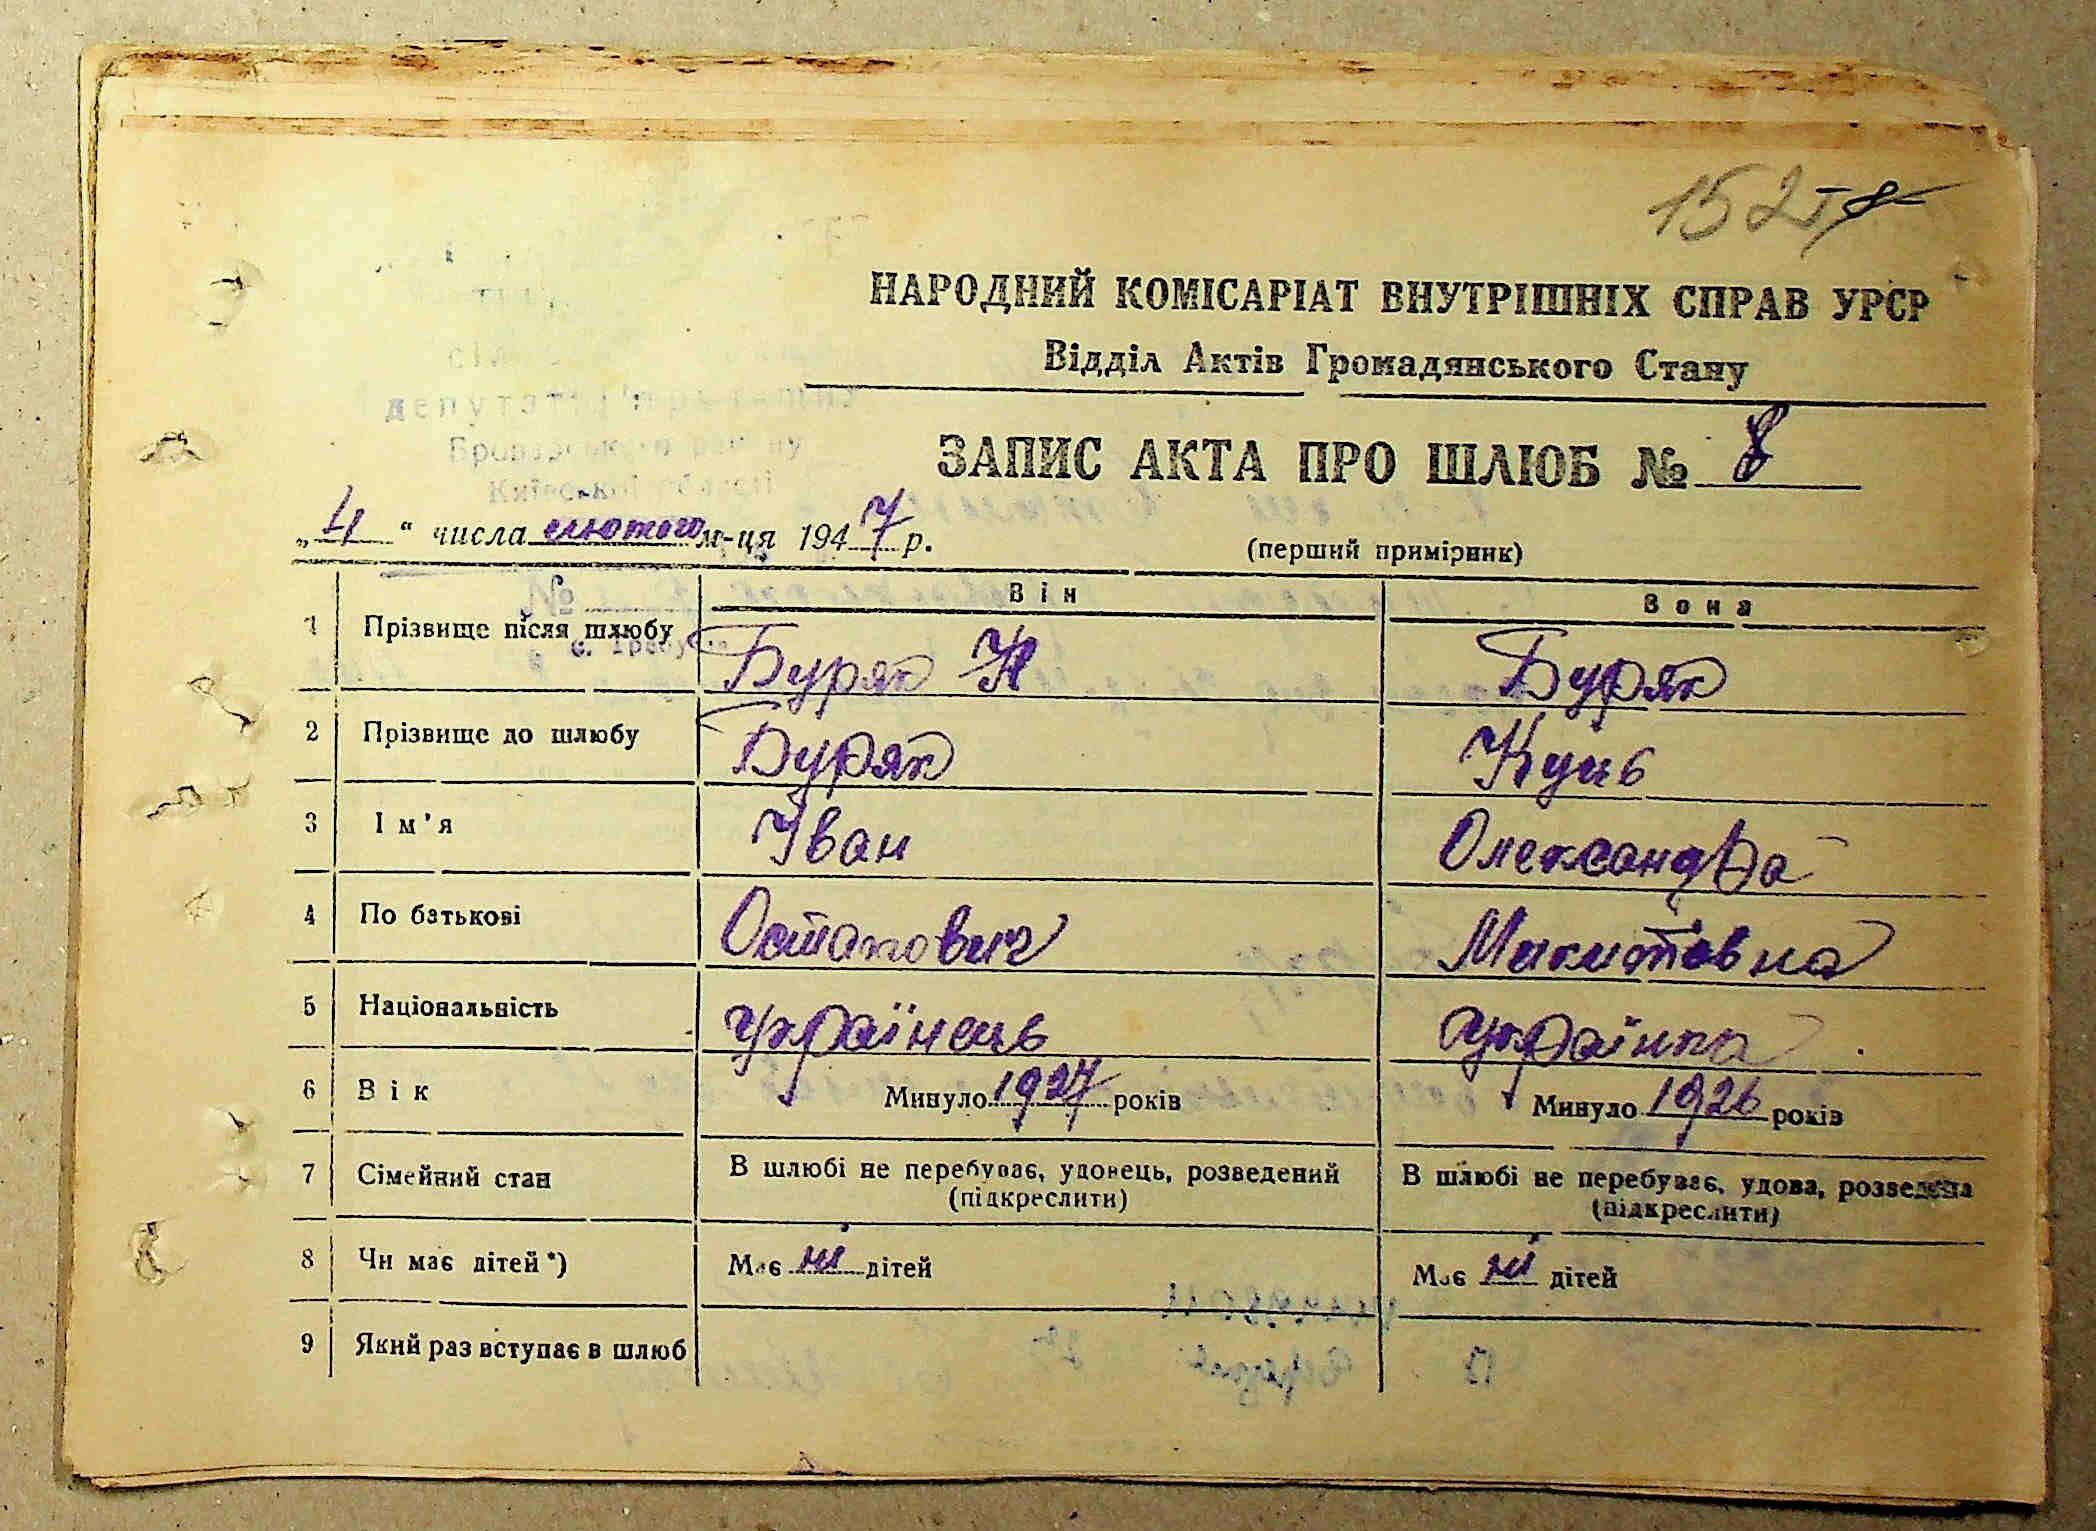 152
НАРОДНИЙ КОМІСАРІАТ ВНУТРІШНІХ СПРАВ УРСР
Відділ Актів Громадянського Стану
депутатів трудящих
Броварського району
Київської області
ЗАПИС АКТА ПРО ШЛЮБ № 8
„4“ числа лютого м-ця 1947 р.
(перший примірник)
№
Він Вона
1 Прізвище після шлюбу Буряк Буряк
2 Прізвище до шлюбу Буряк Куць
3 Ім'я Іван Олександра
4 По батькові Остапович Микитовна
5 Національність українець українка
6 Вік Минуло 1927 років Минуло 1926 років
7 Сімейний стан В шлюбі не перебуває, удовець, розведений В шлюбі не перебуває, удова, розведена
(підкреслити) (підкреслити)
8 Чи має дітей*) Має ні дітей Має ні дітей
9 Який раз вступає в шлюб